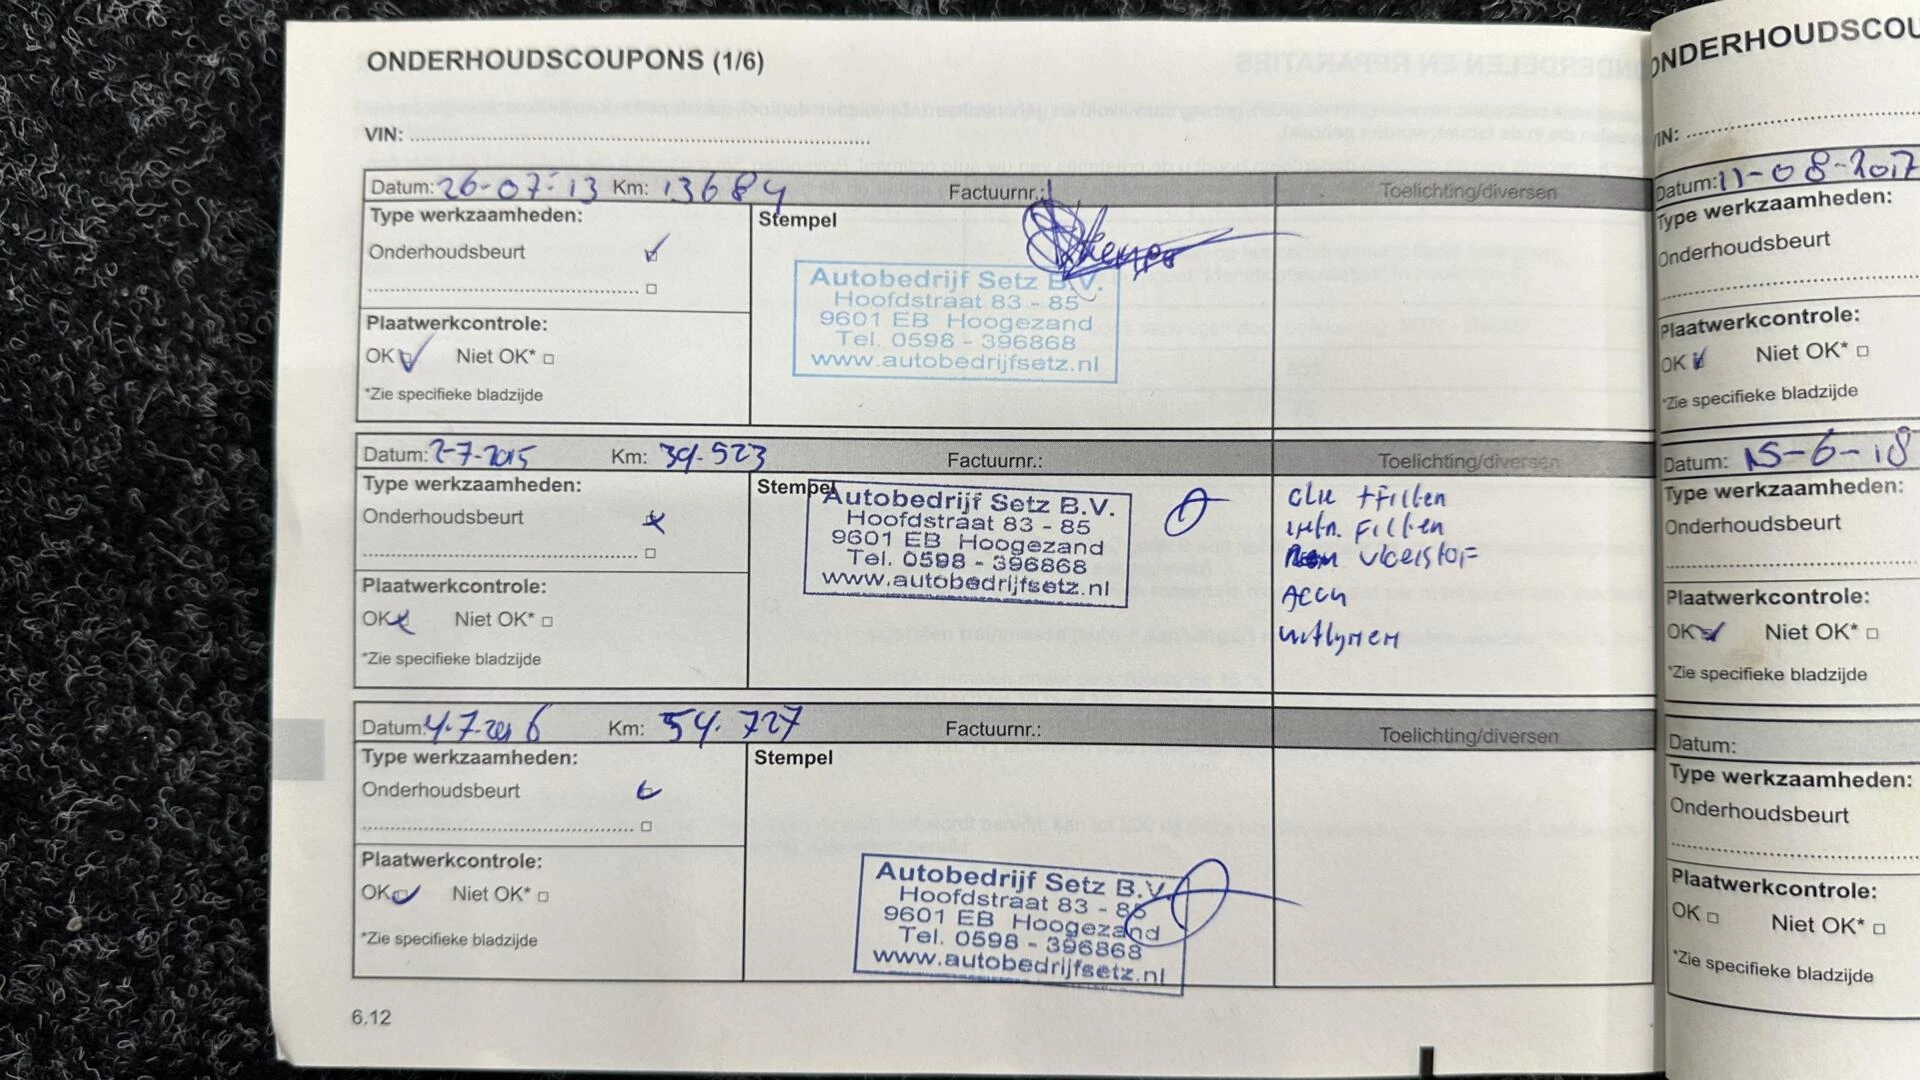 ONDERHOUDSCOUPONS (1/6)
VIN:
Datum: 26-07-13 Km: 13684 Factuurnr.: Toelichting/diversen
Type werkzaamheden: Stempel
Onderhoudsbeurt
Autobedrijf Setz B.V.
Hoofdstraat 83 - 85
9601 EB Hoogezand
Tel. 0598 - 396868
www.autobedrijfsetz.nl
Plaatwerkcontrole:
OK Niet OK*
*Zie specifieke bladzijde
Datum: 2-7-2015 Km: 39.523 Factuurnr.: Toelichting/diversen
Type werkzaamheden: Stempel
Onderhoudsbeurt
Autobedrijf Setz B.V.
Hoofdstraat 83 - 85
9601 EB Hoogezand
Tel. 0598 - 396868
www.autobedrijfsetz.nl
olie + filter
intr. Filter
vloeistof
Accu
uitlijnen
Plaatwerkcontrole:
OK Niet OK*
*Zie specifieke bladzijde
Datum: 4.7.2016 Km: 54.727 Factuurnr.: Toelichting/diversen
Type werkzaamheden: Stempel
Onderhoudsbeurt
Plaatwerkcontrole:
OK Niet OK*
*Zie specifieke bladzijde
Autobedrijf Setz B.V.
Hoofdstraat 83 - 85
9601 EB Hoogezand
Tel. 0598 - 396868
www.autobedrijfsetz.nl
6.12
ONDERHOUDSCOU
VIN:
Datum: 11-08-2017
Type werkzaamheden:
Onderhoudsbeurt
Plaatwerkcontrole:
OK Niet OK*
*Zie specifieke bladzijde
Datum: 15-6-18
Type werkzaamheden:
Onderhoudsbeurt
Plaatwerkcontrole:
OK Niet OK*
*Zie specifieke bladzijde
Datum:
Type werkzaamheden:
Onderhoudsbeurt
Plaatwerkcontrole:
OK Niet OK*
*Zie specifieke bladzijde